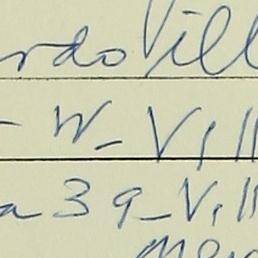 rdo Vill
- W - Vill
a 39 - Vill